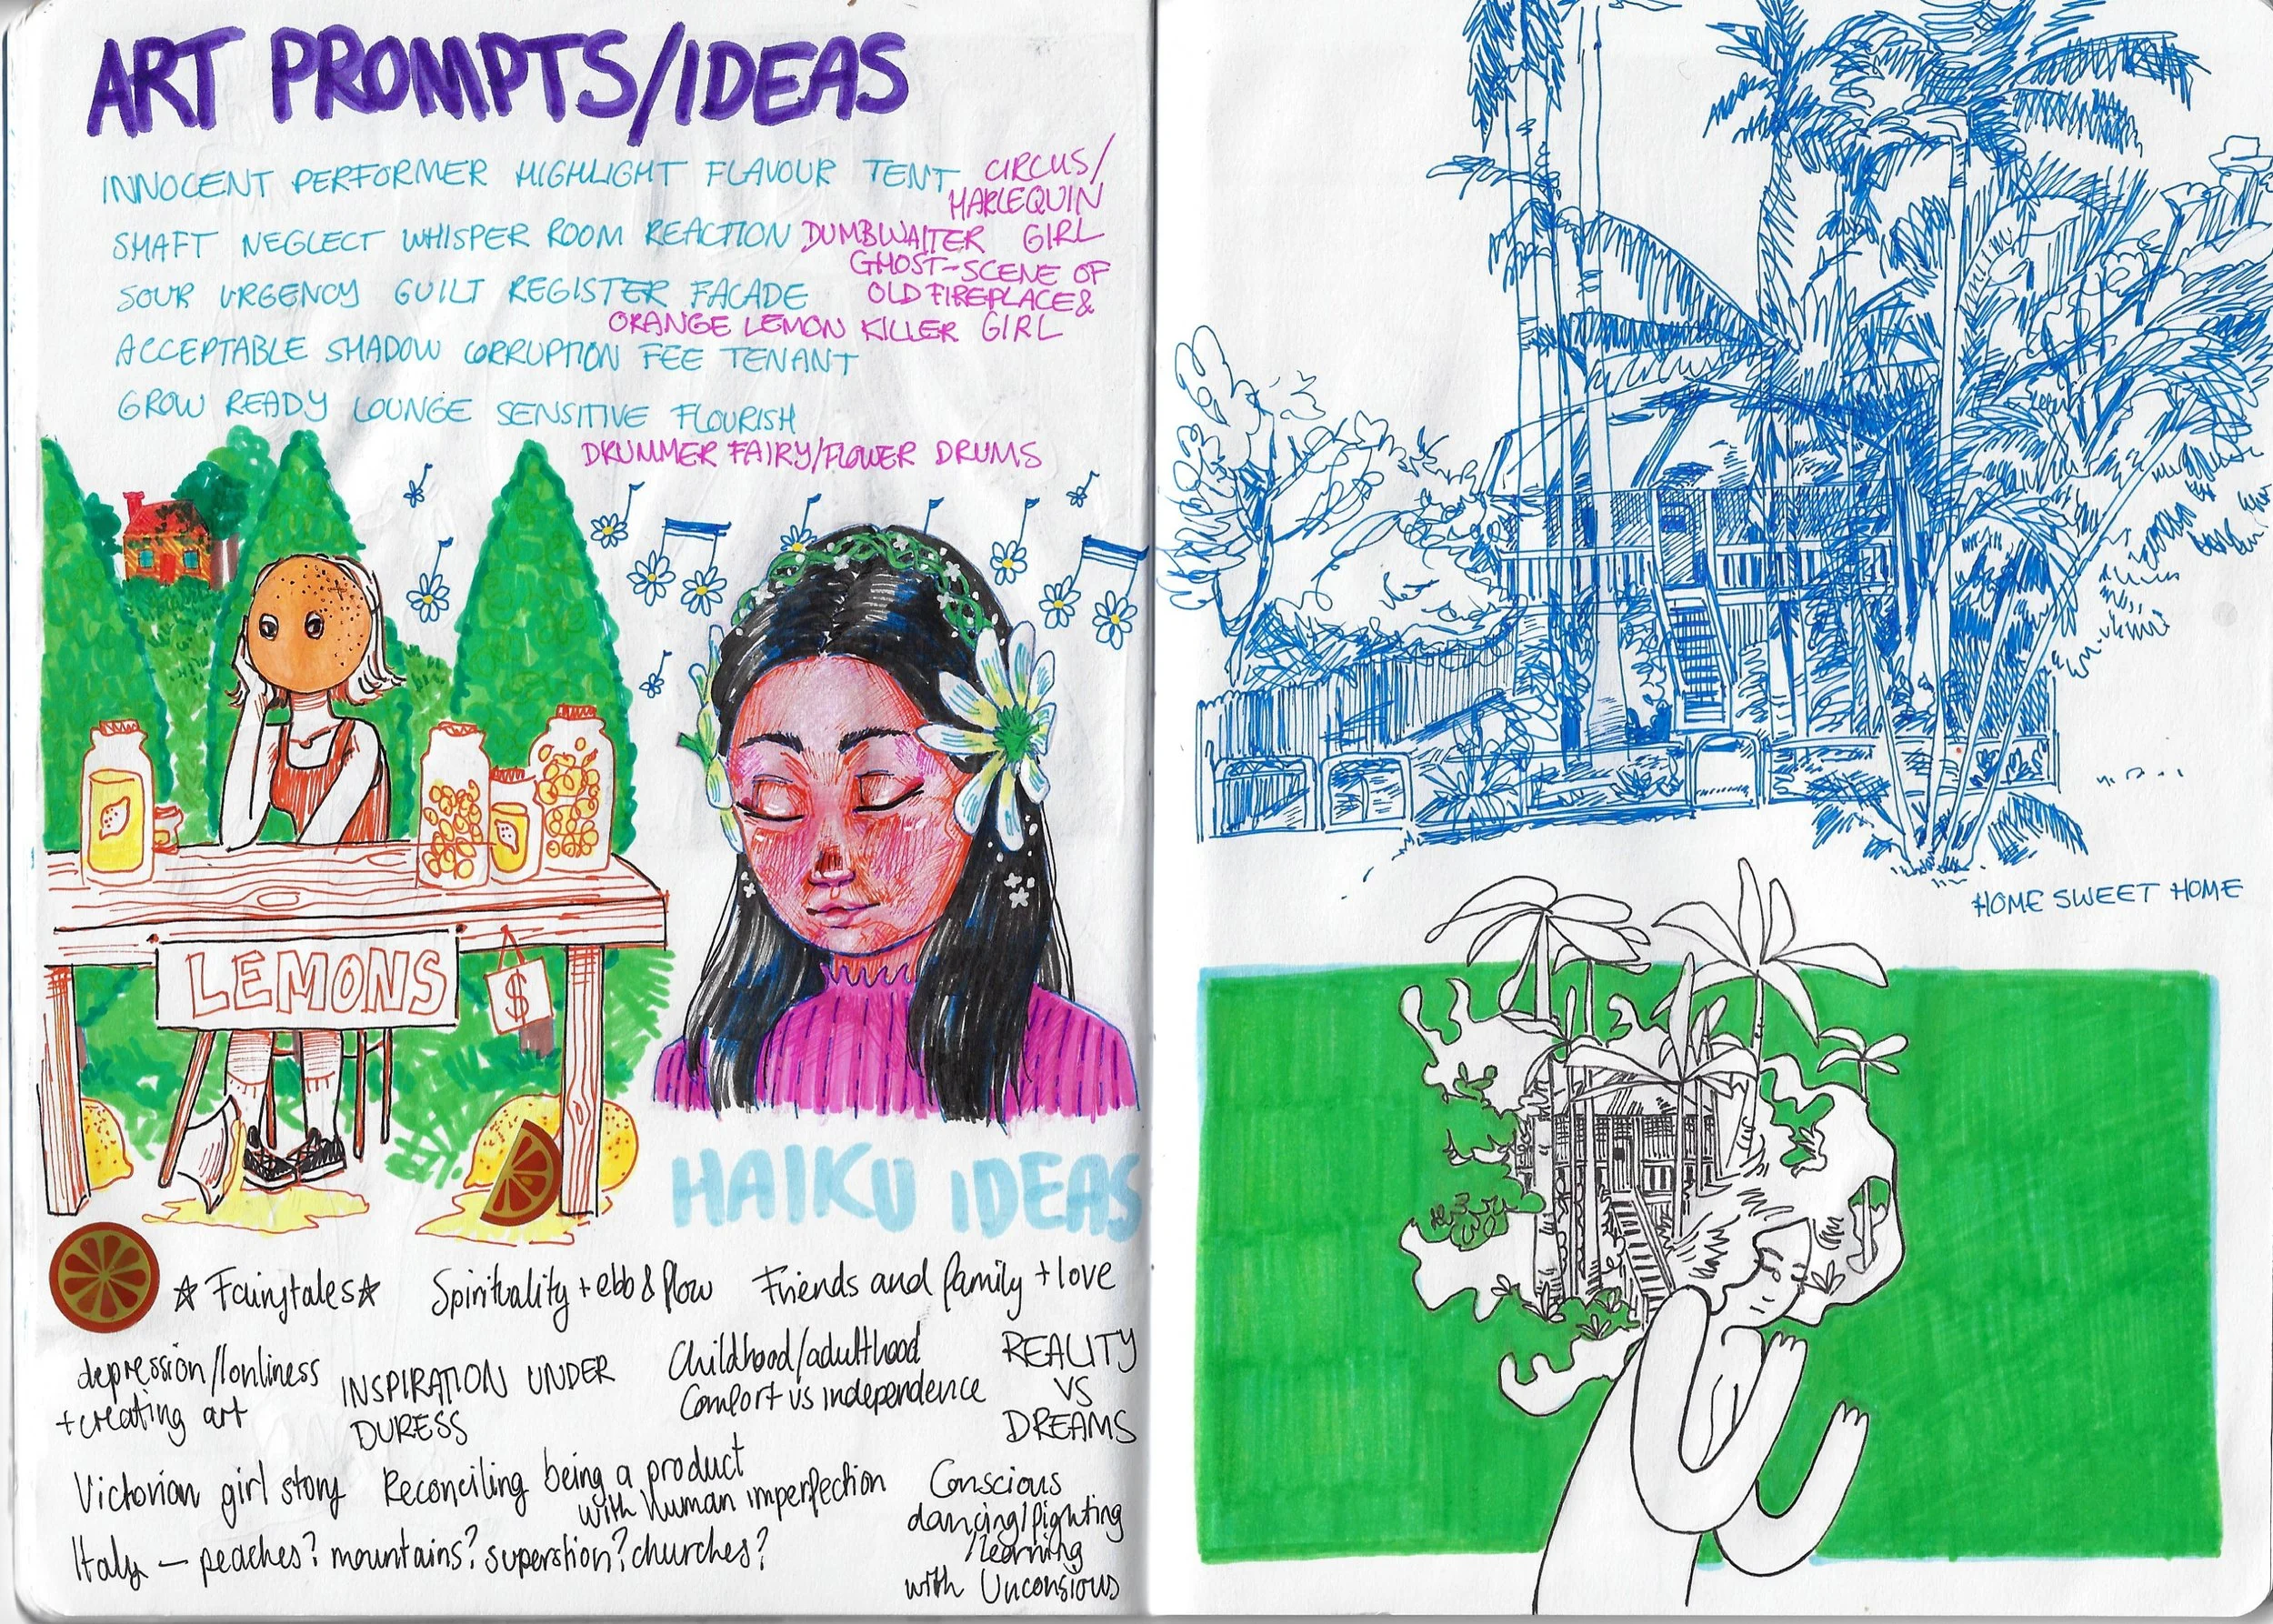 ART PROMPTS/IDEAS
INNOCENT PERFORMER HIGHLIGHT FLAVOUR TENT
CIRCUS/
HARLEQUIN
GIRL
SHAFT NEGLECT WHISPER ROOM REACTION
DUMBWAITER
GHOST-SCENE OF
OLD FIREPLACE &
GIRL
SOUR URGENCY GUILT REGISTER FACADE
ORANGE LEMON KILLER
ACCEPTABLE SHADOW CORRUPTION FEE TENANT
GROW READY LOUNGE SENSITIVE FLOURISH
DRUMMER FAIRY/FLOWER DRUMS
LEMONS
$
HAIKU IDEAS
☆ Fairytales ☆
Spirituality + ebb & flow
Friends and family + love
depression/lonliness
+ creating art
INSPIRATION UNDER
DURESS
Childhood/adulthood
Comfort vs independence
REALITY
VS
DREAMS
Victorian girl story
Reconciling being a product
with human imperfection
Conscious
dancing/fighting
/learning
with Unconsious
Italy — peaches? mountains? superstion? churches?
HOME SWEET HOME